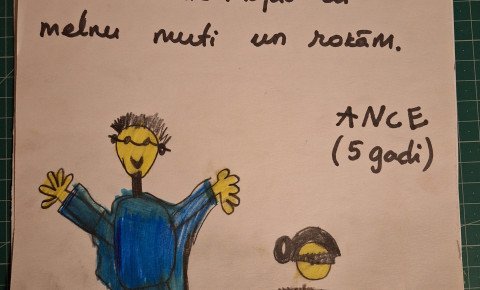 melnu muti un rokām.
ANCE
(5 gadi)